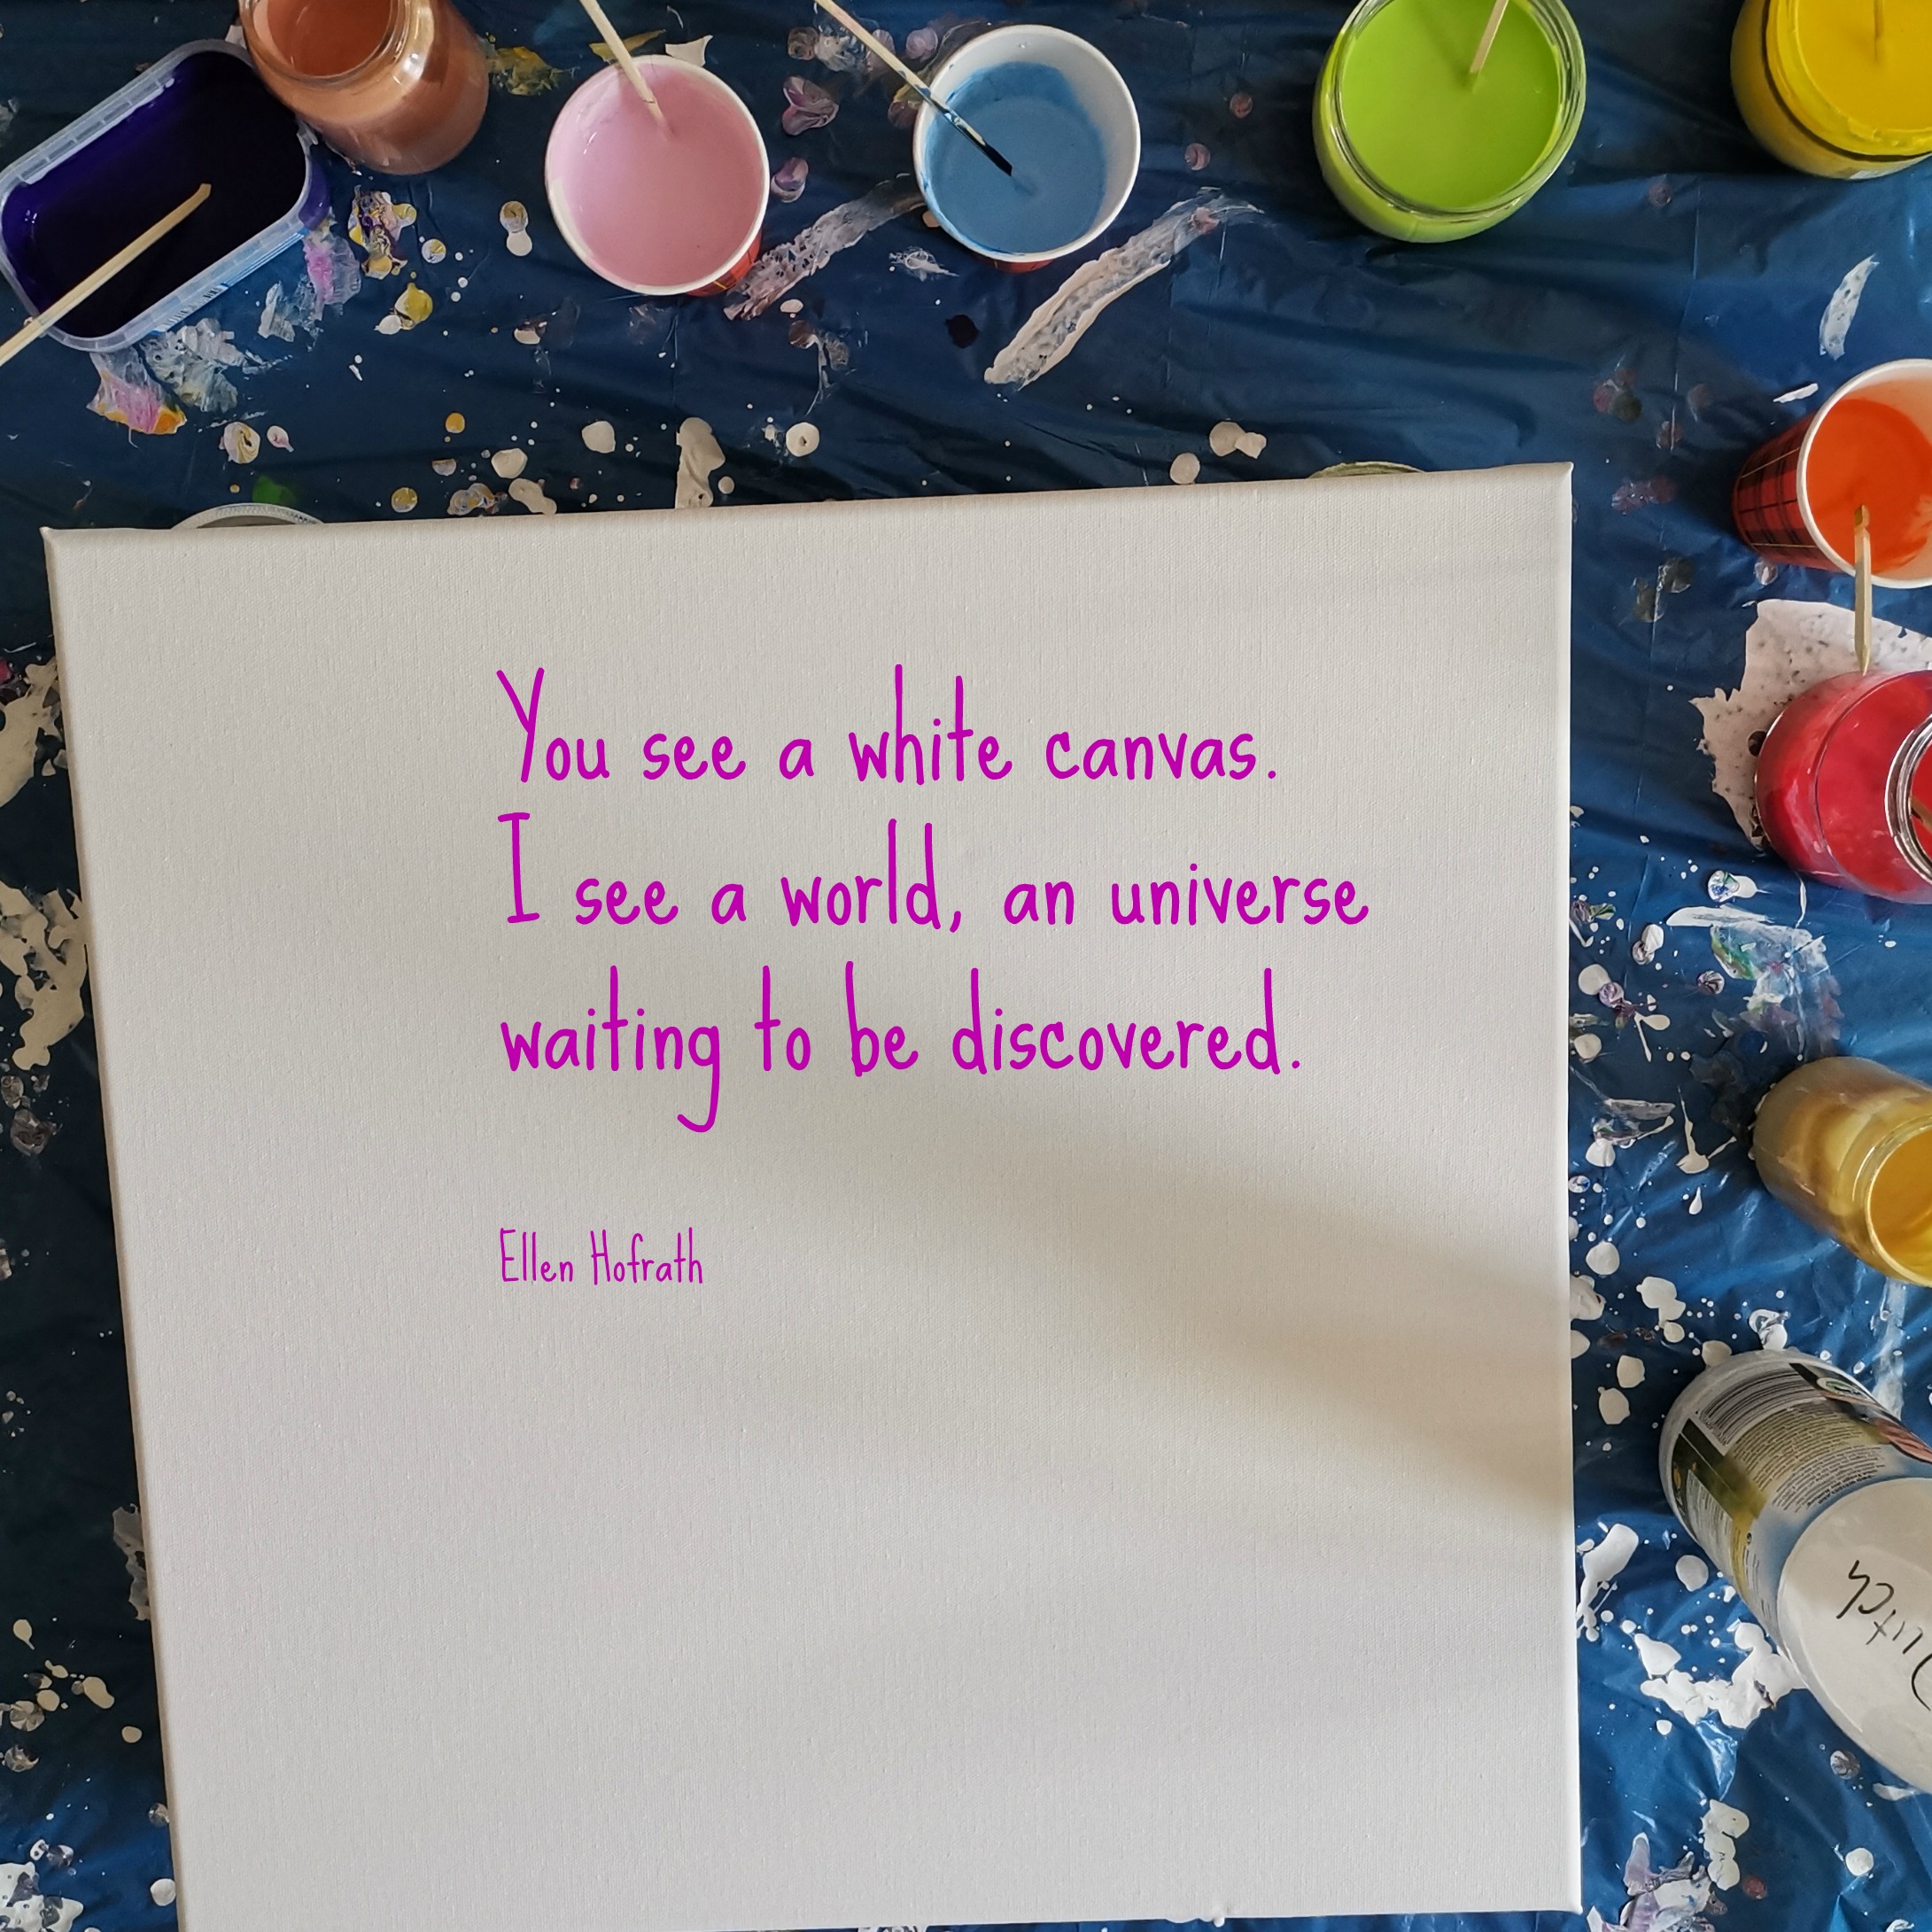 You see a white canvas.
I see a world, an universe
waiting to be discovered.
Ellen Hofrath